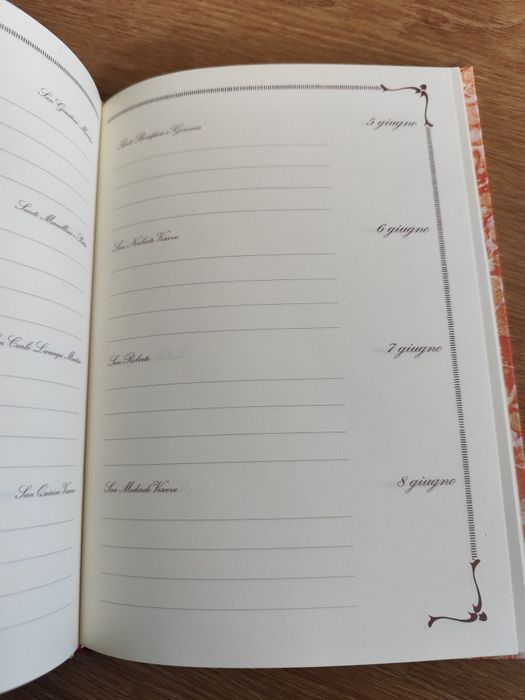 San Giustino Martire
Santi Marcellino e Pietro
Carlo Lwanga Martire
San Quirino Vescovo
Santi Bonifacio e
5 giugno
San Norberto Vescovo
6 giugno
San Roberto
7 giugno
San Medardo Vescovo
8 giugno